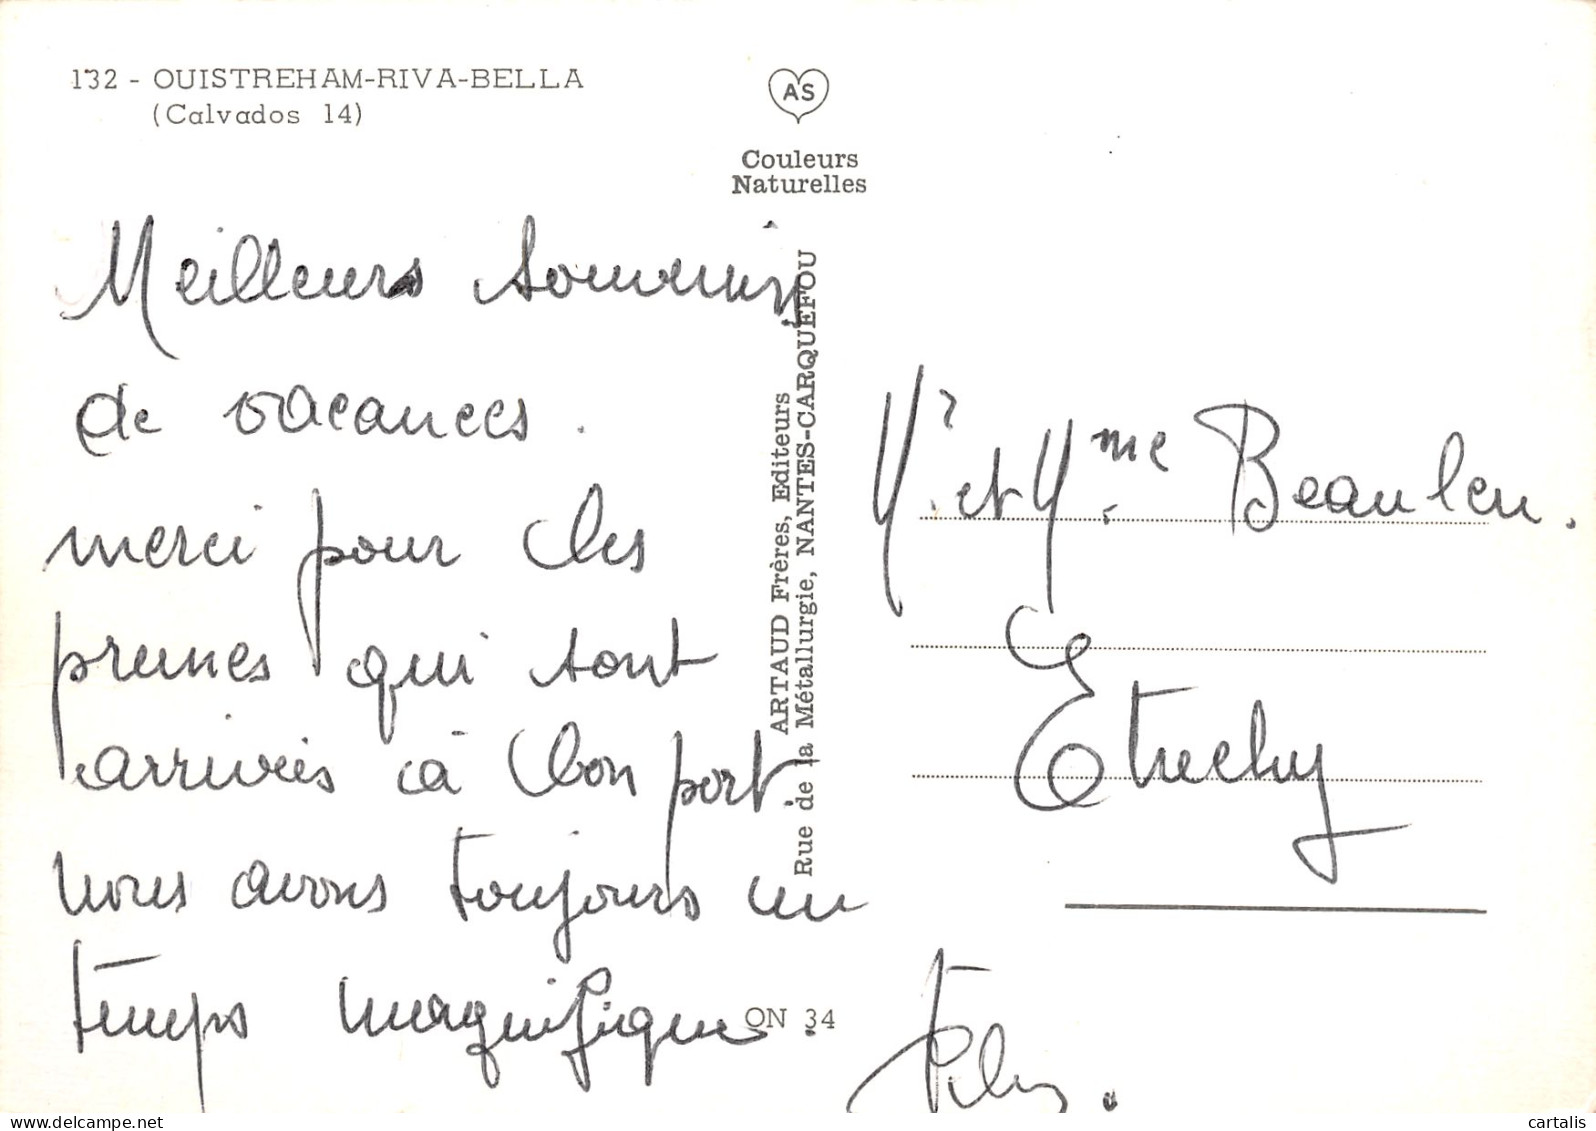 132 - OUISTREHAM-RIVA-BELLA
(Calvados 14)
AS
Couleurs
Naturelles
Meilleurs souvenirs
de vacances.
merci pour les
prunes qui sont
arrivées à bon port
nous avons toujours un
temps magnifique.
ARTAUD Frères, Editeurs
Rue de la Métallurgie, NANTES-CARQUEFOU
ON 34
Mr et Mme Beaulieu.
Etrechy
cartalis
delcampe.net